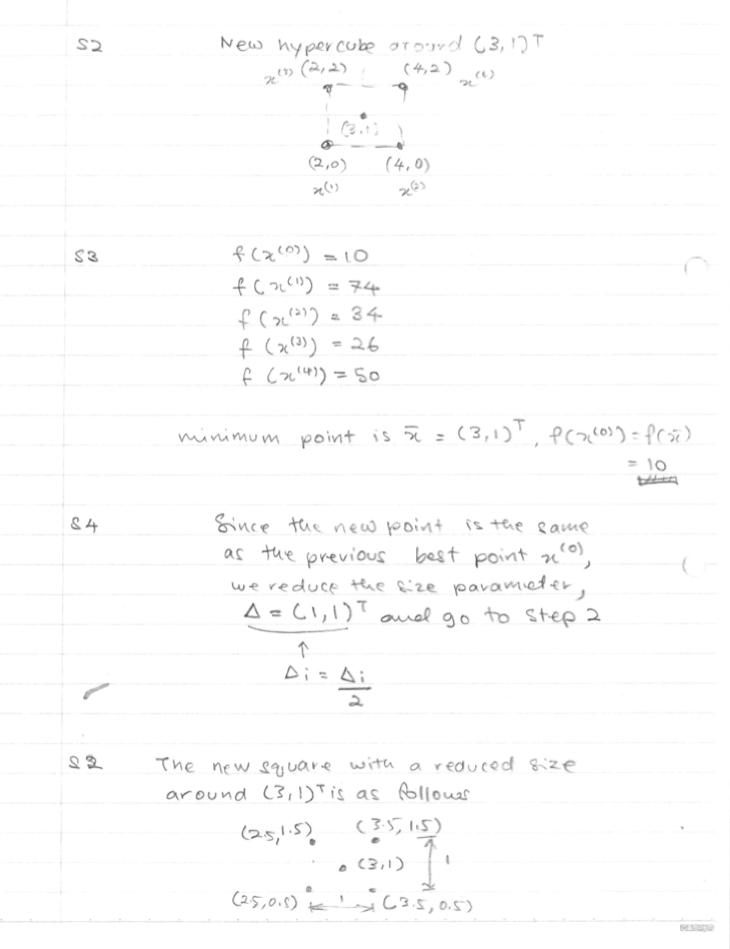 S2 New hypercube around (3,1)ᵀ
x⁽³⁾ (2,2) (4,2) x⁽⁴⁾
(3,1)
(2,0) (4,0)
x⁽¹⁾ x⁽²⁾
S3 f(x⁽⁰⁾) = 10
f(x⁽¹⁾) = 74
f(x⁽²⁾) = 34
f(x⁽³⁾) = 26
f(x⁽⁴⁾) = 50
minimum point is x̄ = (3,1)ᵀ, f(x⁽⁰⁾) = f(x̄)
= 10
S4 Since the new point is the same
as the previous best point x⁽⁰⁾,
we reduce the size parameter,
Δ = (1,1)ᵀ and go to step 2
↑
Δi = Δi
2
S2 The new square with a reduced size
around (3,1)ᵀ is as follows
(2.5,1.5) (3.5,1.5)
(3,1) 1
(2.5,0.5) 1 (3.5,0.5)